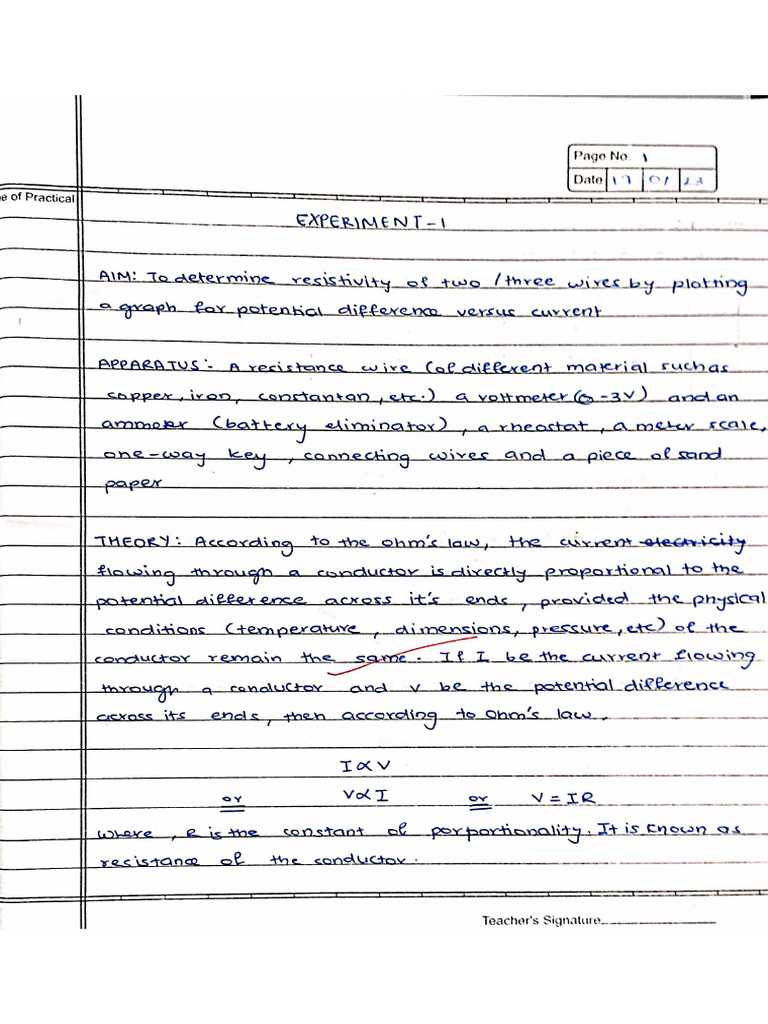 Page No. 1
Date 17 01 23
e of Practical
EXPERIMENT-1
AIM: To determine resistivity of two / three wires by plotting
a graph for potential difference versus current
APPARATUS:- A resistance wire (of different material such as
copper, iron, constantan, etc.) a voltmeter (0-3V) and an
ammeter (battery eliminator), a rheostat, a meter scale,
one-way key, connecting wires and a piece of sand
paper
THEORY: According to the ohm's law, the current electricity
flowing through a conductor is directly proportional to the
potential difference across it's ends, provided the physical
conditions (temperature, dimensions, pressure, etc) of the
conductor remain the same. If I be the current flowing
through a conductor and V be the potential difference
across its ends, then according to Ohm's law,
I ∝ V
or V ∝ I or V = IR
where, R is the constant of porportionality. It is known as
resistance of the conductor.
Teacher's Signature